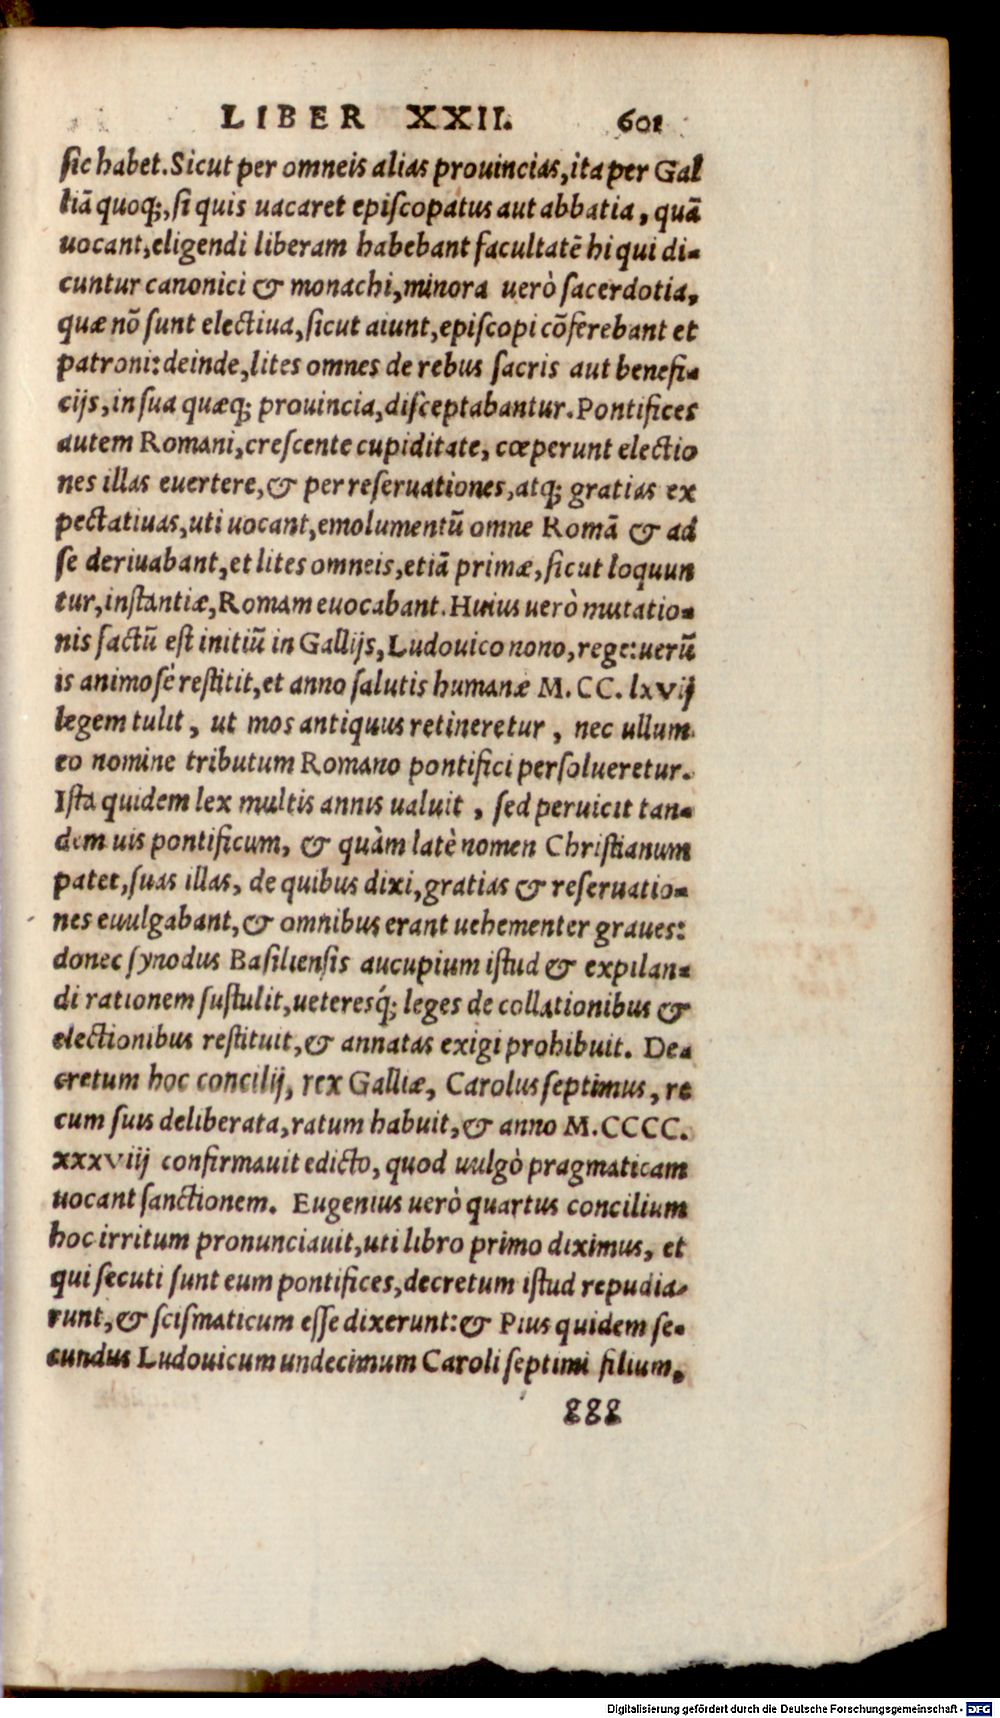 LIBER XXII. 601
sic habet. Sicut per omneis alias prouincias, ita per Gal
liā quoq;, si quis uacaret episcopatus aut abbatia, quā
uocant, eligendi liberam habebant facultatē hi qui di-
cuntur canonici & monachi, minora uerò sacerdotia,
quæ nō sunt electiua, sicut aiunt, episcopi cōferebant et
patroni: deinde, lites omnes de rebus sacris aut benefi-
cijs, in sua quæq; prouincia, disceptabantur. Pontifices
autem Romani, crescente cupiditate, cœperunt electio
nes illas euertere, & per reseruationes, atq; gratias ex
pectatiuas, uti uocant, emolumentū omne Romā & ad
se deriuabant, et lites omneis, etiā primæ, sicut loquun
tur, instantiæ, Romam euocabant. Huius uerò mutatio-
nis factū est initiū in Gallijs, Ludouico nono, rege: uerū
is animosè restitit, et anno salutis humanæ M. CC. lxvij
legem tulit, ut mos antiquus retineretur, nec ullum
eo nomine tributum Romano pontifici persolueretur.
Ista quidem lex multis annis ualuit, sed peruicit tan-
dem uis pontificum, & quàm latè nomen Christianum
patet, suas illas, de quibus dixi, gratias & reseruatio-
nes euulgabant, & omnibus erant uehementer graues:
donec synodus Basiliensis aucupium istud & expilan-
di rationem sustulit, ueteresq́; leges de collationibus &
electionibus restituit, & annatas exigi prohibuit. De-
cretum hoc concilij, rex Galliæ, Carolus septimus, re
cum suis deliberata, ratum habuit, & anno M.CCCC.
xxxviij confirmauit edicto, quod uulgò pragmaticam
uocant sanctionem. Eugenius uerò quartus concilium
hoc irritum pronunciauit, uti libro primo diximus, et
qui secuti sunt eum pontifices, decretum istud repudia-
runt, & scismaticum esse dixerunt: & Pius quidem se-
cundus Ludouicum undecimum Caroli septimi filium,
ggg
Digitalisierung gefördert durch die Deutsche Forschungsgemeinschaft - DFG